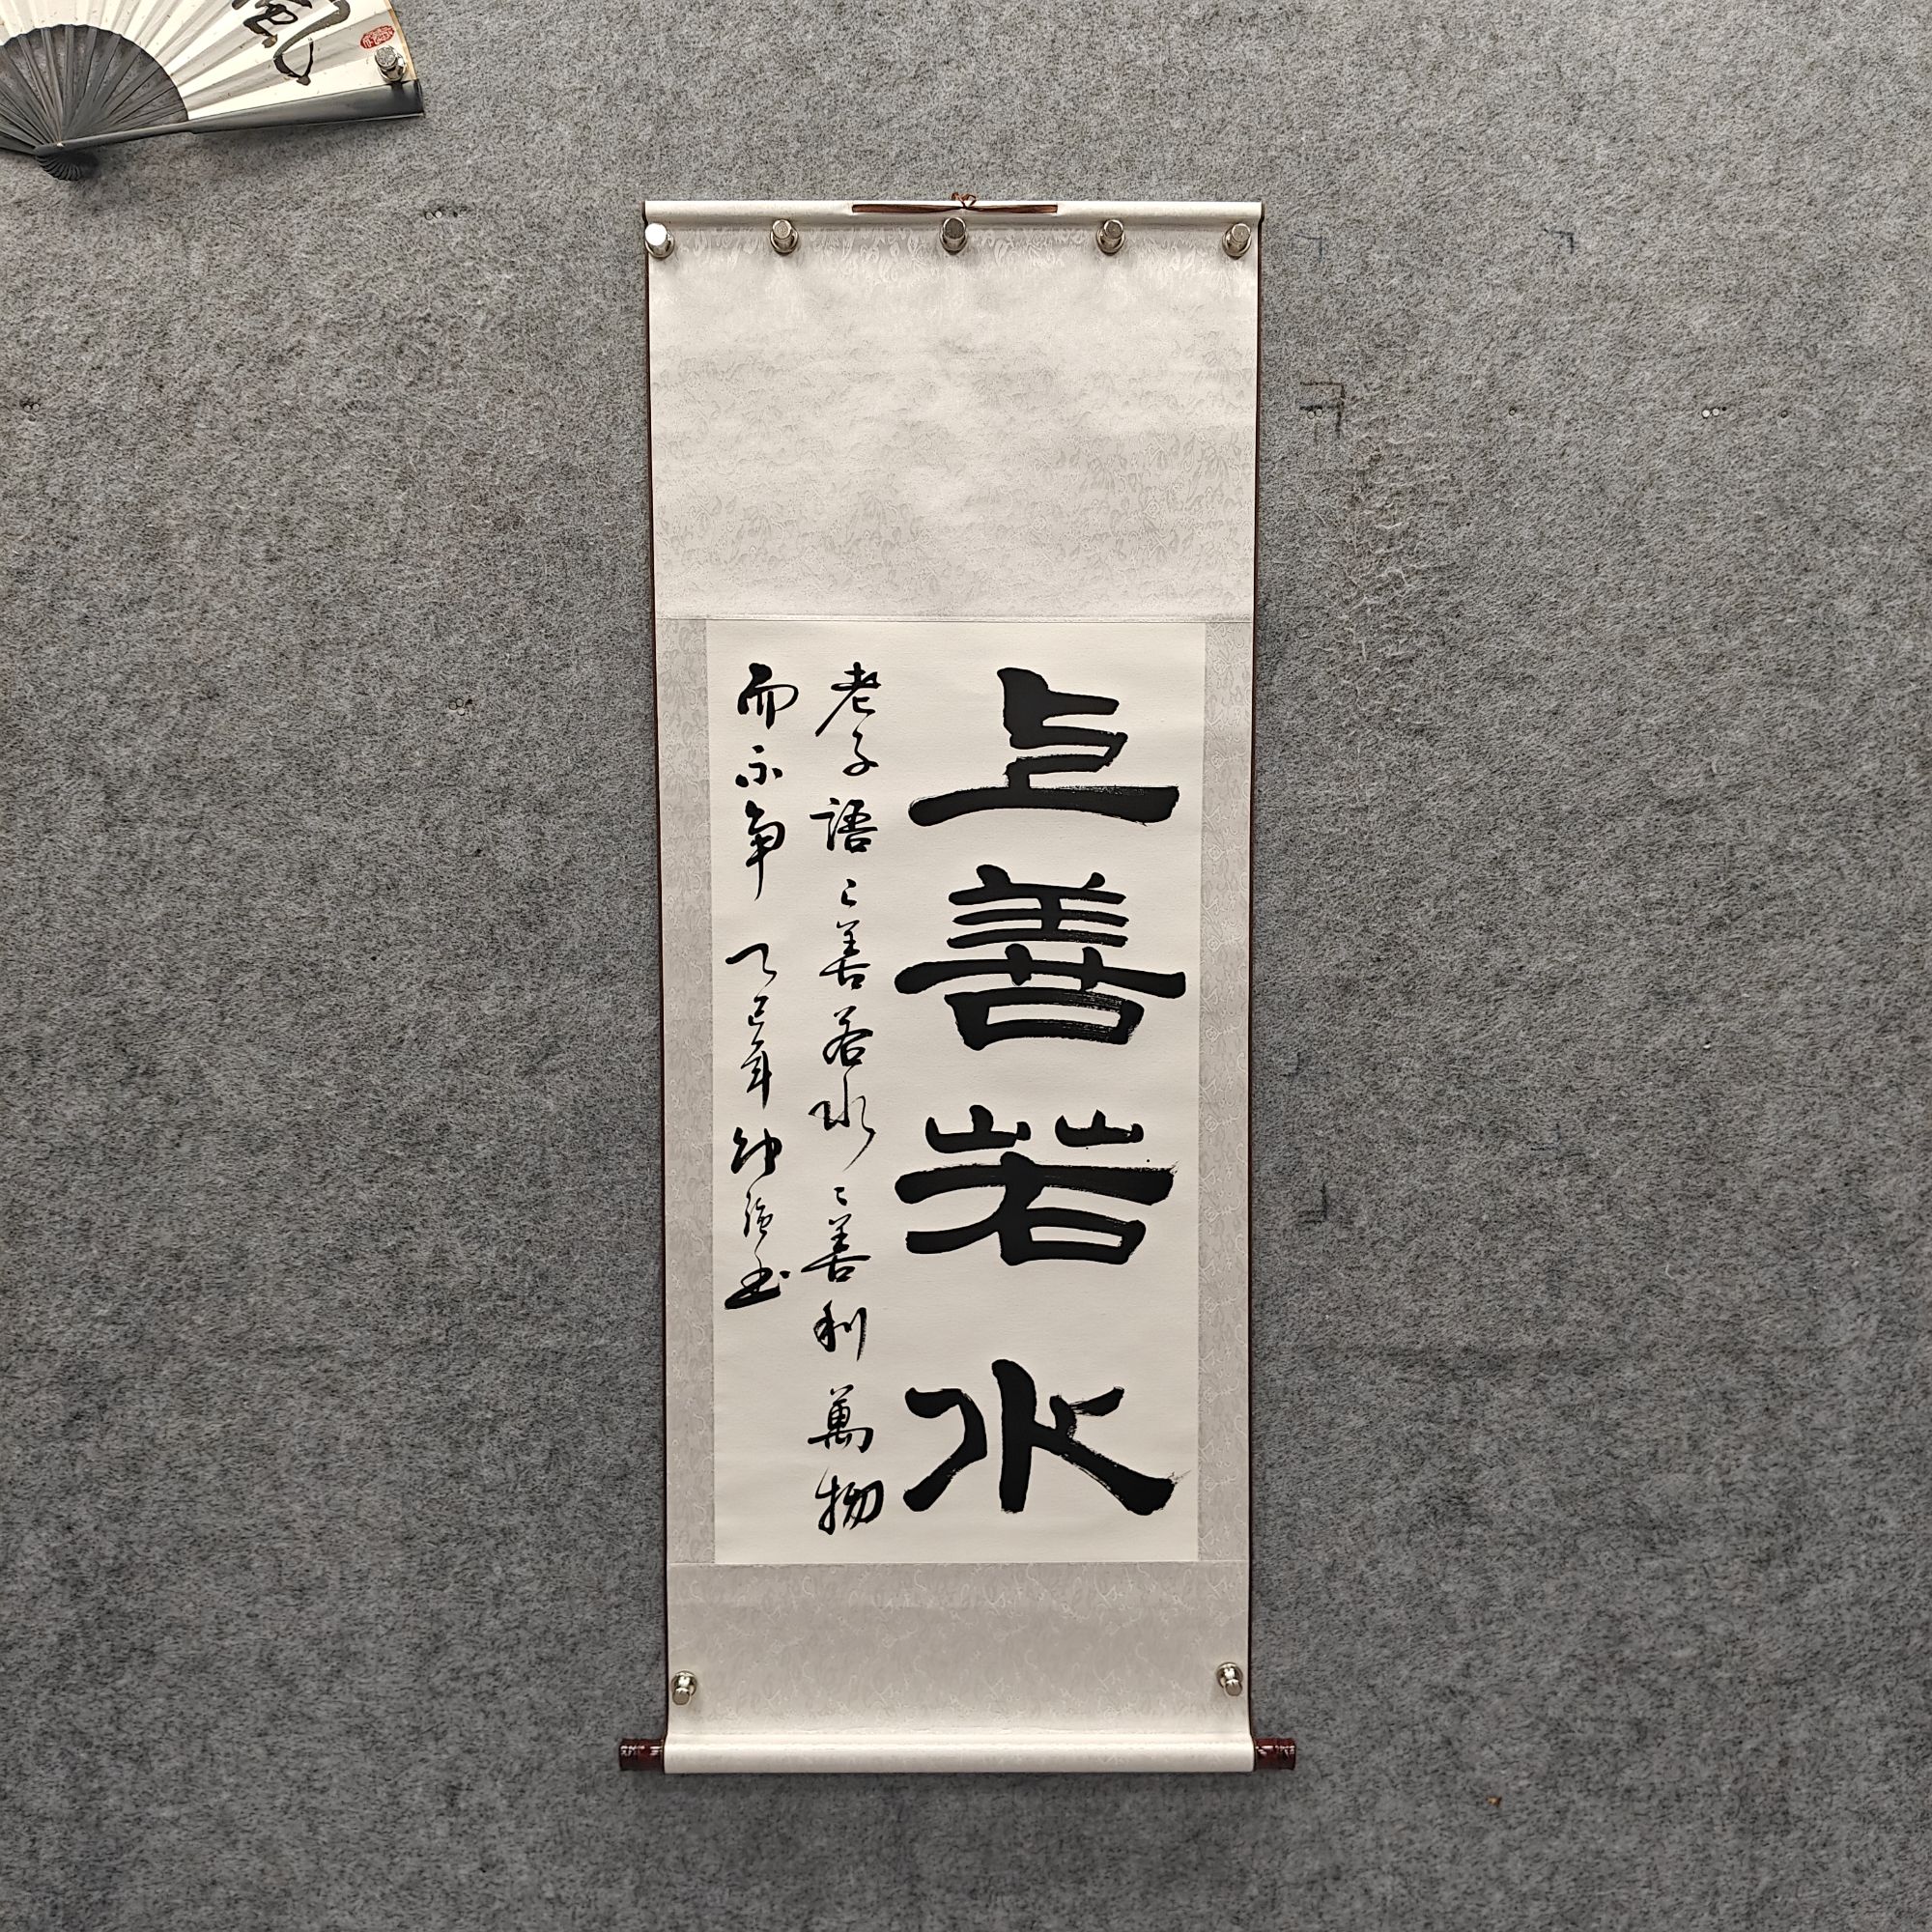 上善若水
老子語上善若水〻善利萬物
而不争 乙巳年 书